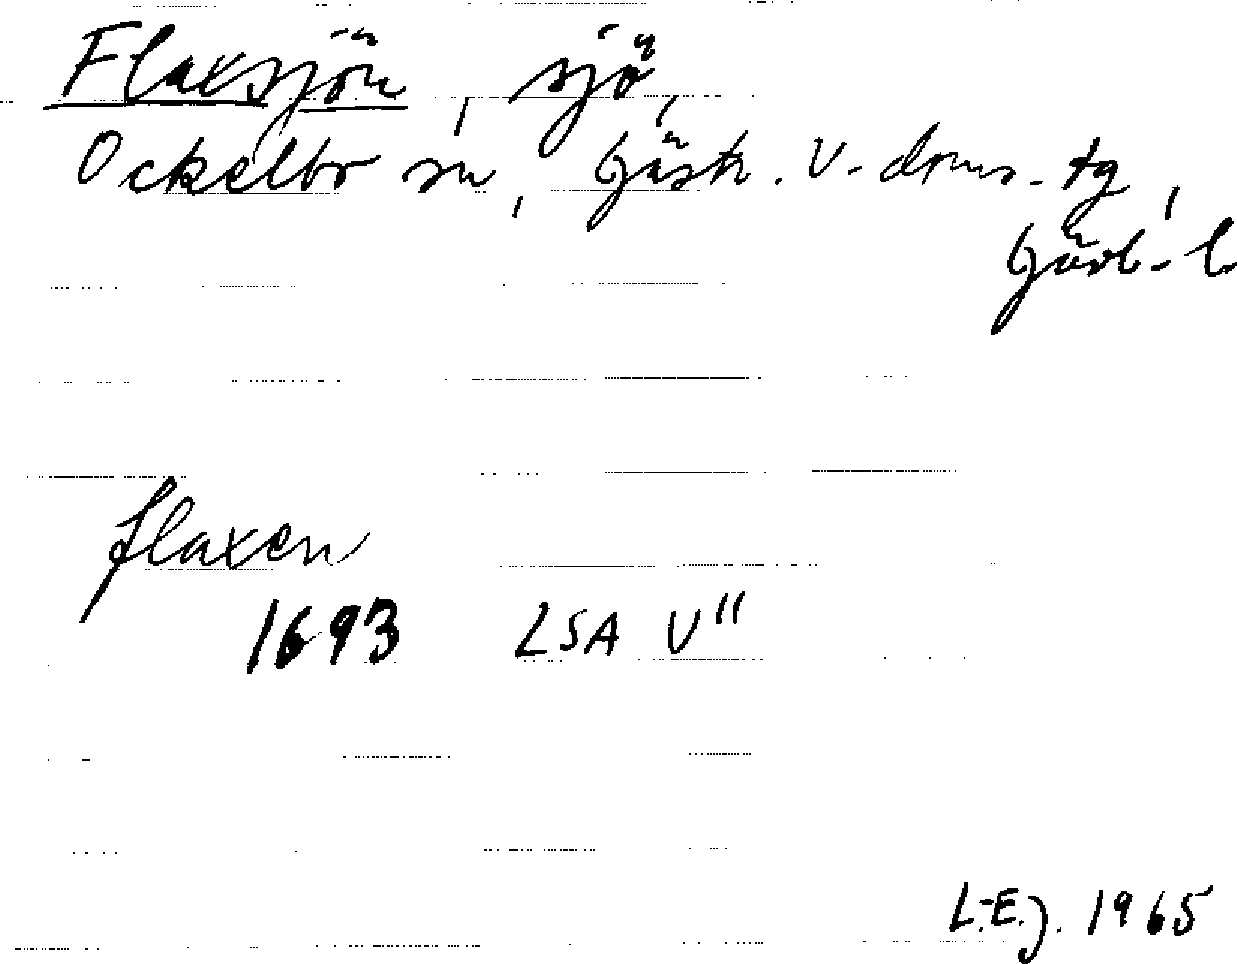 Flaxsjön, sjö,
Ockelbo sn, Gästr. v. doms. tg,
Gävl. l.
flaxen
1693 LSA V"
L.-E.J. 1965